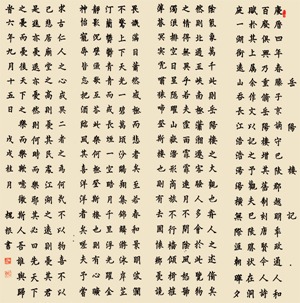 岳陽樓記
慶曆四年春滕子京謫守巴陵郡越明年政通人和
百廢具興乃重脩岳陽樓增其舊制刻唐賢今人詩
賦於其上屬余作文以記之予觀夫巴陵勝狀在洞
庭一湖銜遠山吞長江浩浩湯湯橫無際涯朝暉夕
陰氣象萬千此則岳陽樓之大觀也前人之述備矣
然則北通巫峽南極瀟湘遷客騷人多會於此覽物
之情得無異乎若夫霪雨霏霏連月不開陰風怒號
濁浪排空日星隱曜山岳潛形商旅不行檣傾楫摧
薄暮冥冥虎嘯猿啼登斯樓也則有去國懷鄉憂讒
畏譏滿目蕭然感極而悲者矣至若春和景明波瀾
不驚上下天光一碧萬頃沙鷗翔集錦鱗游泳岸芷
汀蘭郁郁青青而或長煙一空皓月千里浮光躍金
靜影沉璧漁歌互答此樂何極登斯樓也則有心曠
神怡寵辱皆忘把酒臨風其喜洋洋者矣嗟夫予嘗
求古仁人之心或異二者之為何哉不以物喜不以
己悲居廟堂之高則憂其民處江湖之遠則憂其君
是進亦憂退亦憂然則何時而樂耶其必曰先天下
之憂而憂後天下之樂而樂歟噫微斯人吾誰與歸
時六年九月十五日 戊戌桂月 槐根書